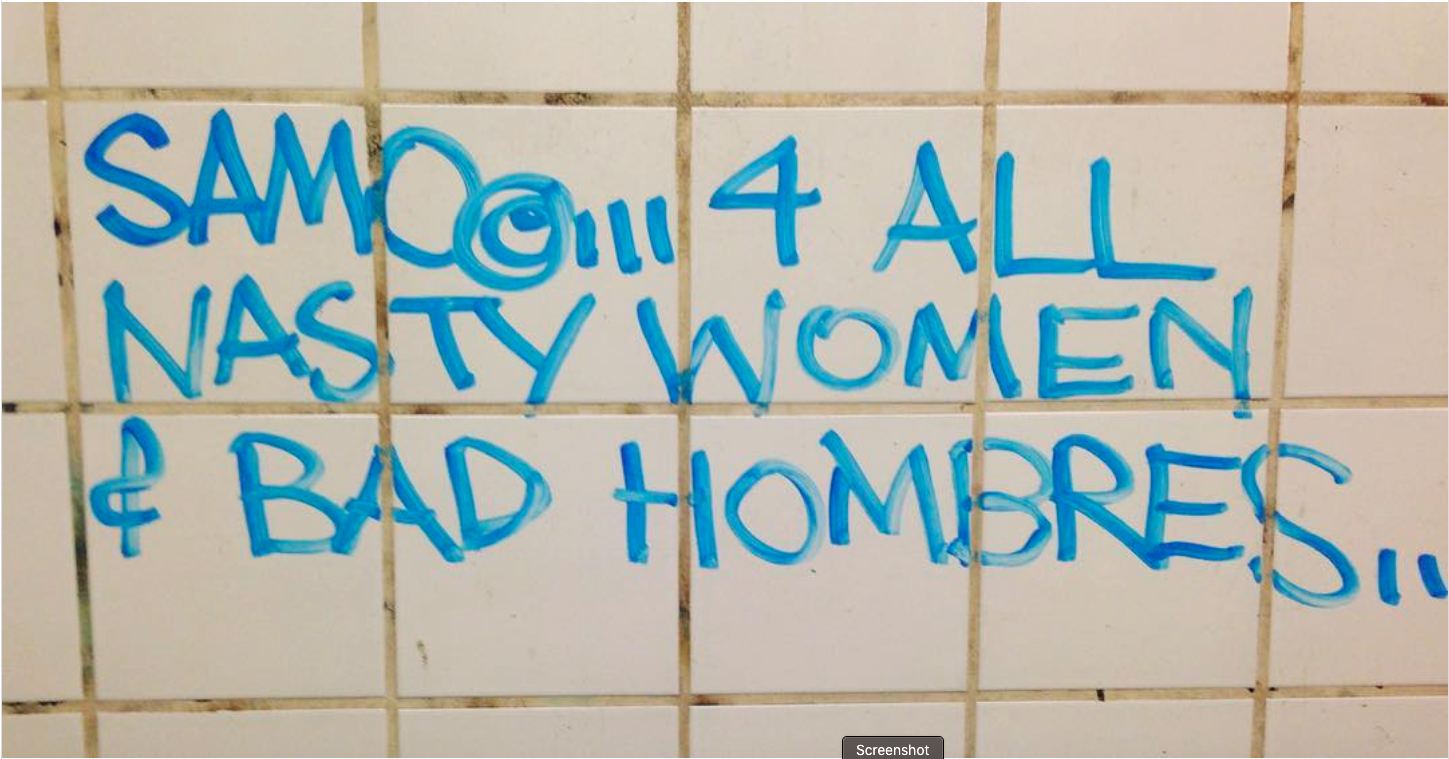 SAMO©... 4 ALL
NASTY WOMEN
& BAD HOMBRES...
Screenshot